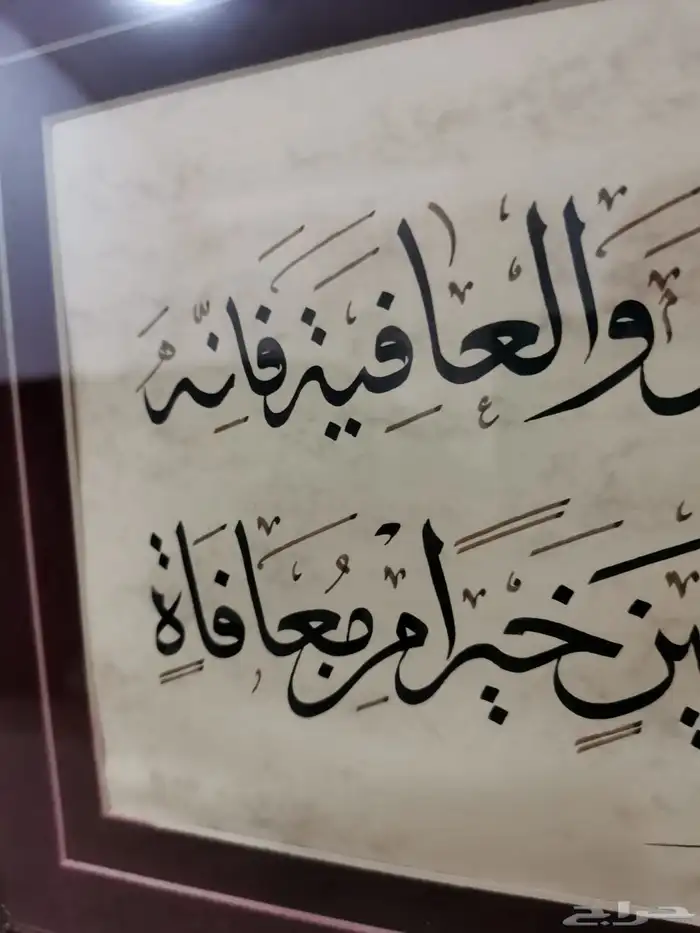 وَالعَافِيَةَ فَاِنَّهُ
ـينٍ خَيْرًا مِنْ مُعَافَاةٍ
حراج